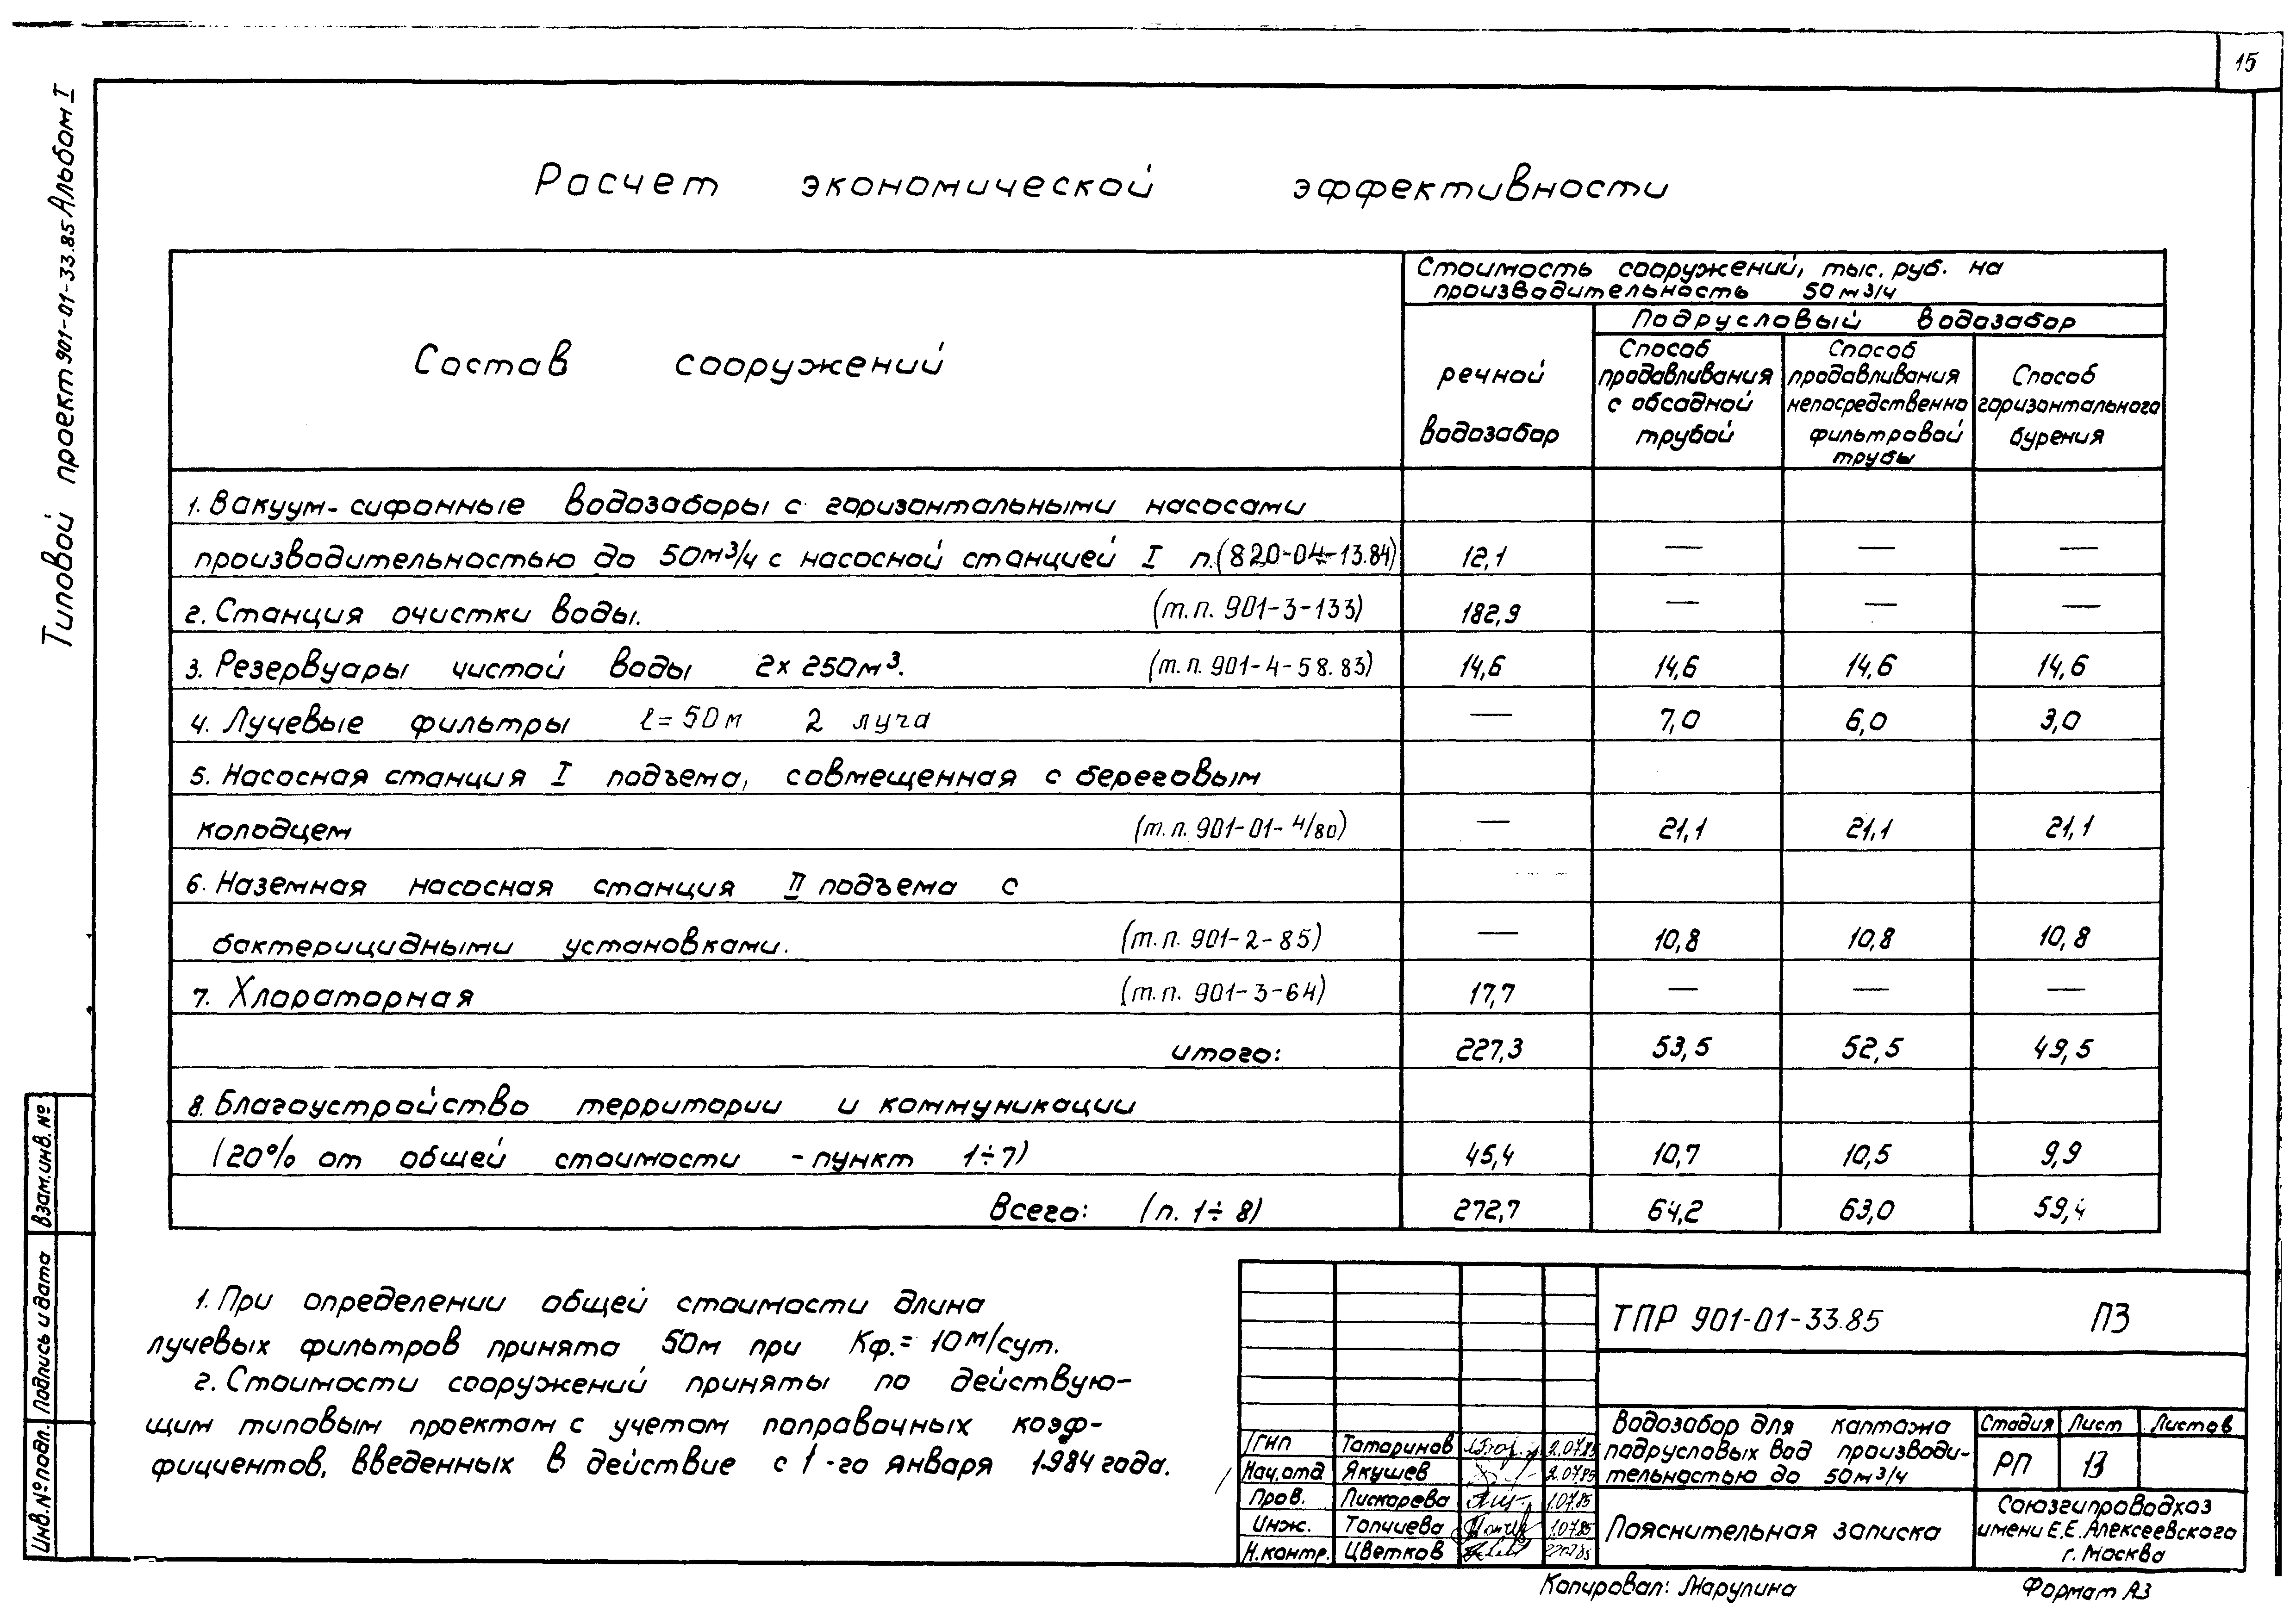 15
Типовой проект 901-01-33.85 Альбом I
Расчет экономической эффективности
Состав сооружений
Стоимость сооружений, тыс. руб. на
производительность 50 м3/ч
речной
водозабор
Подрусловый водозабор
Способ
продавливания
с обсадной
трубой
Способ
продавливания
непосредственно
фильтровой
трубы
Способ
горизонтального
бурения
1. Вакуум-сифонные водозаборы с горизонтальными насосами
производительностью до 50 м³/ч с насосной станцией I п. (820-04-13.84) 12,1 — — —
2. Станция очистки воды. (т.п. 901-3-133) 182,9 — — —
3. Резервуары чистой воды 2х250м³. (т.п. 901-4-58.83) 14,6 14,6 14,6 14,6
4. Лучевые фильтры ℓ=50м 2 луча — 7,0 6,0 3,0
5. Насосная станция I подъема, совмещенная с береговым
колодцем (т.п. 901-01-4/80) — 21,1 21,1 21,1
6. Наземная насосная станция II подъема с
бактерицидными установками. (т.п. 901-2-85) — 10,8 10,8 10,8
7. Хлораторная (т.п. 901-3-64) 17,7 — — —
итого: 227,3 53,5 52,5 49,5
8. Благоустройство территории и коммуникации
(20% от общей стоимости - пункт 1÷7) 45,4 10,7 10,5 9,9
Всего: (п. 1÷8) 272,7 64,2 63,0 59,4
1. При определении общей стоимости длина
лучевых фильтров принята 50м при Кф.= 10м/сут.
2. Стоимости сооружений приняты по действую-
щим типовым проектам с учетом поправочных коэф-
фициентов, введенных в действие с 1-го января 1984 года.
Взам.инв.№
Подпись и дата
Инв.№ подл.
ТПР 901-01-33.85 ПЗ
Водозабор для каптажа
подрусловых вод производи-
тельностью до 50м³/ч
Стадия Лист Листов
РП 13
Пояснительная записка
Союзгипроводхоз
имени Е.Е.Алексеевского
г. Москва
ГИП Татаринов 2.07.85
Нач.отд Якушев 2.07.85
Пров. Пискарева 1.07.85
Инж. Топчиева 1.07.85
Н.контр. Цветков
Копировал: Марулина
Формат А3